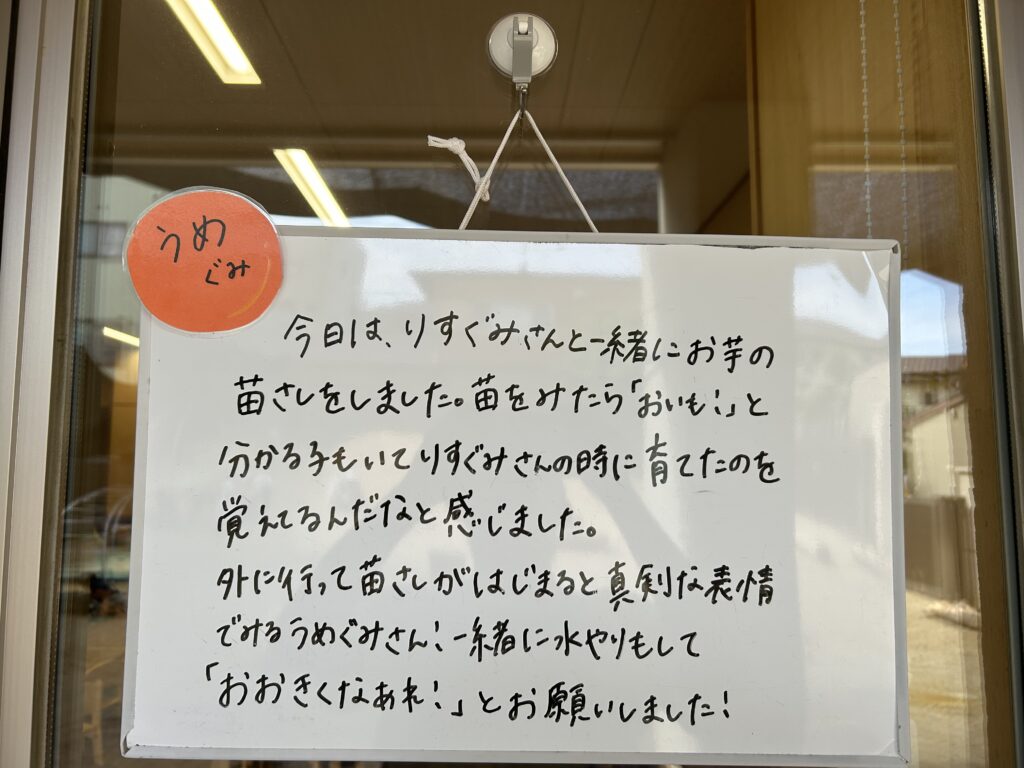 うめ
ぐみ
今日は、りすぐみさんと一緒にお芋の
苗さしをしました。苗をみたら「おいも!」と
分かる子もいてりすぐみさんの時に育てたのを
覚えてるんだなと感じました。
外に行って苗さしがはじまると真剣な表情
でみるうめぐみさん!一緒に水やりもして
「おおきくなあれ!」とお願いしました!